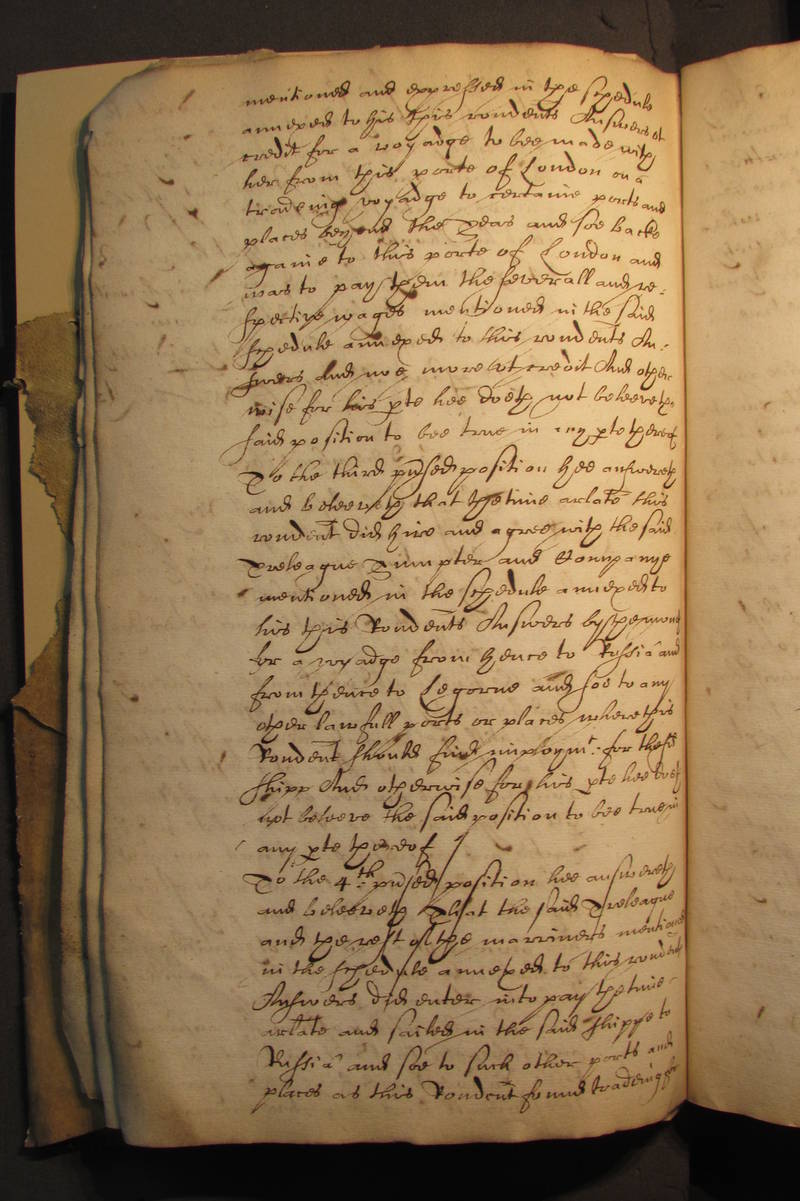 mentioned and expressed in the schedule
annexed to his this rondents Answers et
credit for a voyadge to bee made with
her from this porte of London on a
tradeing voyadge to certaine ports and
places beyond the Seas and soe backe
againe to this porte of London and
was to pay them the severall and re:
spective wages mentioned in the said
schedule annexed to this rondents An:
swers And noe more ut credit And other
wise for his pte hee doeth not beleeve the
said position to bee true in any pte thereof
To the third pnsed position hee answereth
and beleeveth that the time arlate this
rondent did hire and agree with the said
Treleague Sumpter and Company
mentioned in the schedule annexed to
his this Rondents Answers by the month
for a voyadge from hence to Russia and
from thence to Legorne and soe to any
other lawfull ports or places where this
Rondent should find imploymt: for the sd
shipp And otherwise for his pte hee doeth
not beleeve the said position to bee true in
any pte thereof /
To the 4th: pnsed position hee answereth
and beleeveth That the said Treleague
and the rest of the marriners mentioned
in the schedule annexed to this rondents
Answers did enter into pay the time
arlate and sailed in the said shippe to
Russia and soe to such other ports and
places as this Rondent found tradeing for